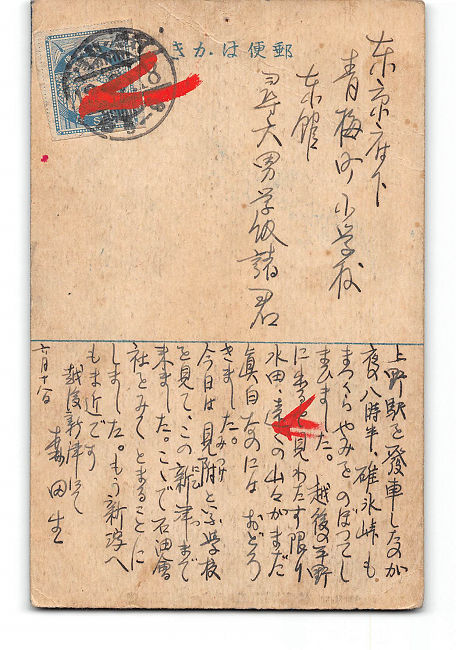 郵便はかき
東京府下
青梅町小学校
東館
尋六男学級諸君
上野駅を發車したのが
夜の八時半、碓氷峠も
まっくらやみをのぼってし
まひました。越後の平野
に来ると見わたす限り
水田、遠くの山々がまだ
眞白なのにはおどろ
きました。
今日は見附と云ふ学校
を見て、この新津まで
来ました。ここで石油會
社とみてとまることに
しました。もう新潟へ
もま近です
越後新津にて
田生
六月十八日